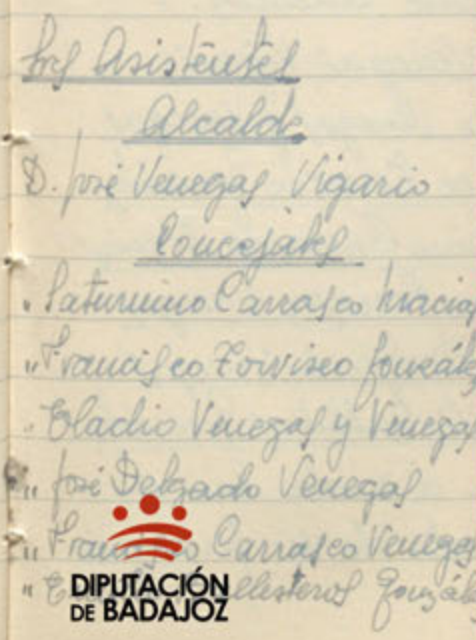 Sres Asistentes
Alcalde
D. José Venegas Vigario
Concejales
" Saturnino Carrasco Macias
" Francisco Torvisco Gonzál
" Eladio Venegas y Venegas
" José Delgado Venegas
" Francisco Carrasco Venegas
" Gonzál
DIPUTACIÓN
DE BADAJOZ